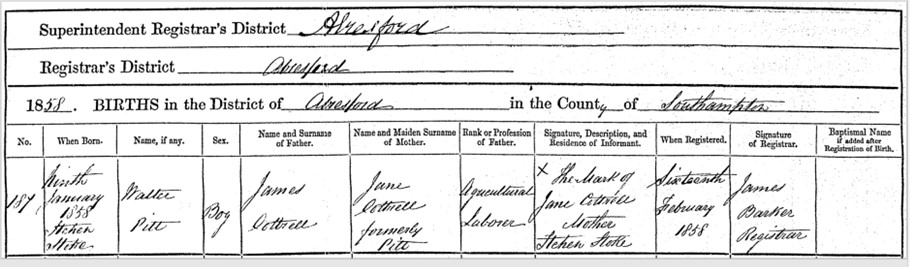 Superintendent Registrar's District Alresford
Registrar's District Alresford
1858. BIRTHS in the District of Alresford in the County of Southampton
No. When Born. Name, if any. Sex. Name and Surname of Father. Name and Maiden Surname of Mother. Rank or Profession of Father. Signature, Description, and Residence of Informant. When Registered. Signature of Registrar. Baptismal Name if added after Registration of Birth.
187
Ninth
January
1858
Itchen
Stoke
Walter
Pitt
Boy
James
Cottrell
Jane
Cottrell
formerly
Pitt
Agricultural
Laborer
X The Mark of
Jane Cottrell
Mother
Itchen Stoke
Sixteenth
February
1858
James
Barker
Registrar